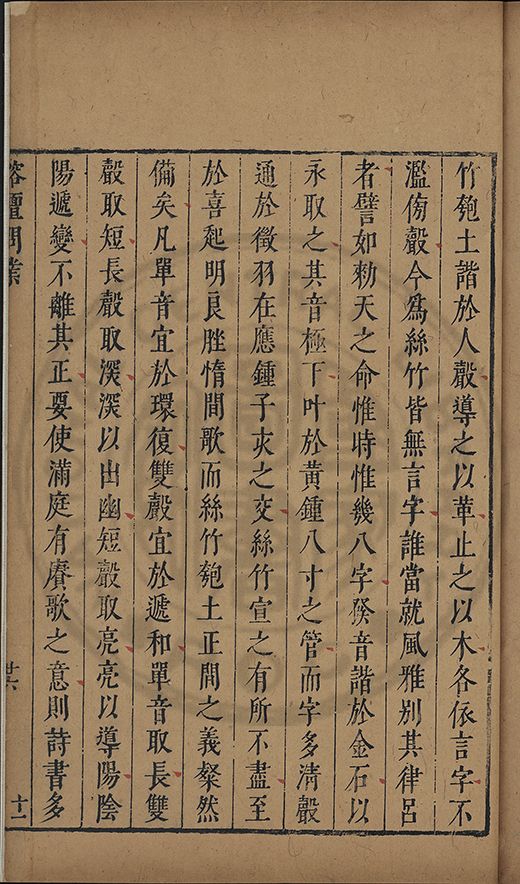 竹匏土諧於人聲導之以革止之以木各依言字不
濫傍聲今為絲竹皆無言字誰當就風雅别其律呂
者譬如勑天之命惟時惟幾八字發音諧於金石以
永取之其音極下叶於黄鍾八寸之管而字多清聲
通於徵羽在應鍾子亥之交絲竹宣之有所不盡至
於喜起明良脞惰間歌而絲竹匏土正間之義粲然
備矣凡單音宜於環復雙聲宜於遞和單音取長雙
聲取短長聲取深深以出幽短聲取亮亮以導陽陰
陽遞變不離其正要使滿庭有賡歌之意則詩書多
榕壇問業 卄六 十一